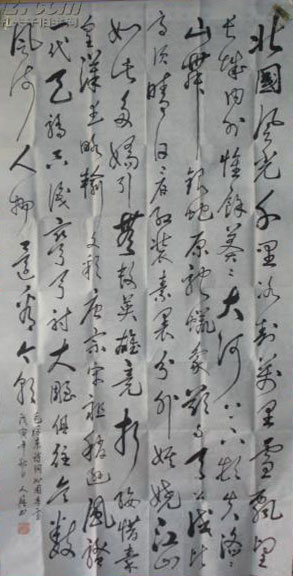 北國風光千里冰封萬里雪飄望
長城内外惟餘莽〻大河上下頓失滔〻
山舞銀蛇原馳蠟象欲與天公試比
高須晴日看紅裝素裹分外妖嬈江山
如此多嬌引無數英雄競折腰惜秦
皇漢武略輸文彩唐宗宋祖稍遜風騷
一代天驕只識彎弓射大雕俱往矣數
風流人物還看今朝
毛澤東詩詞沁園春雪
戊寅年秋月